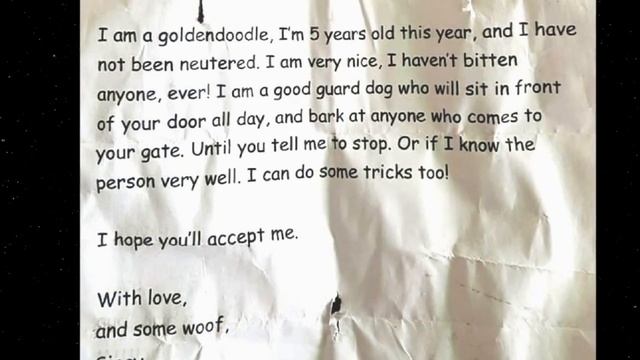 I am a goldendoodle, I'm 5 years old this year, and I have
not been neutered. I am very nice, I haven't bitten
anyone, ever! I am a good guard dog who will sit in front
of your door all day, and bark at anyone who comes to
your gate. Until you tell me to stop. Or if I know the
person very well. I can do some tricks too!
I hope you'll accept me.
With love,
and some woof,